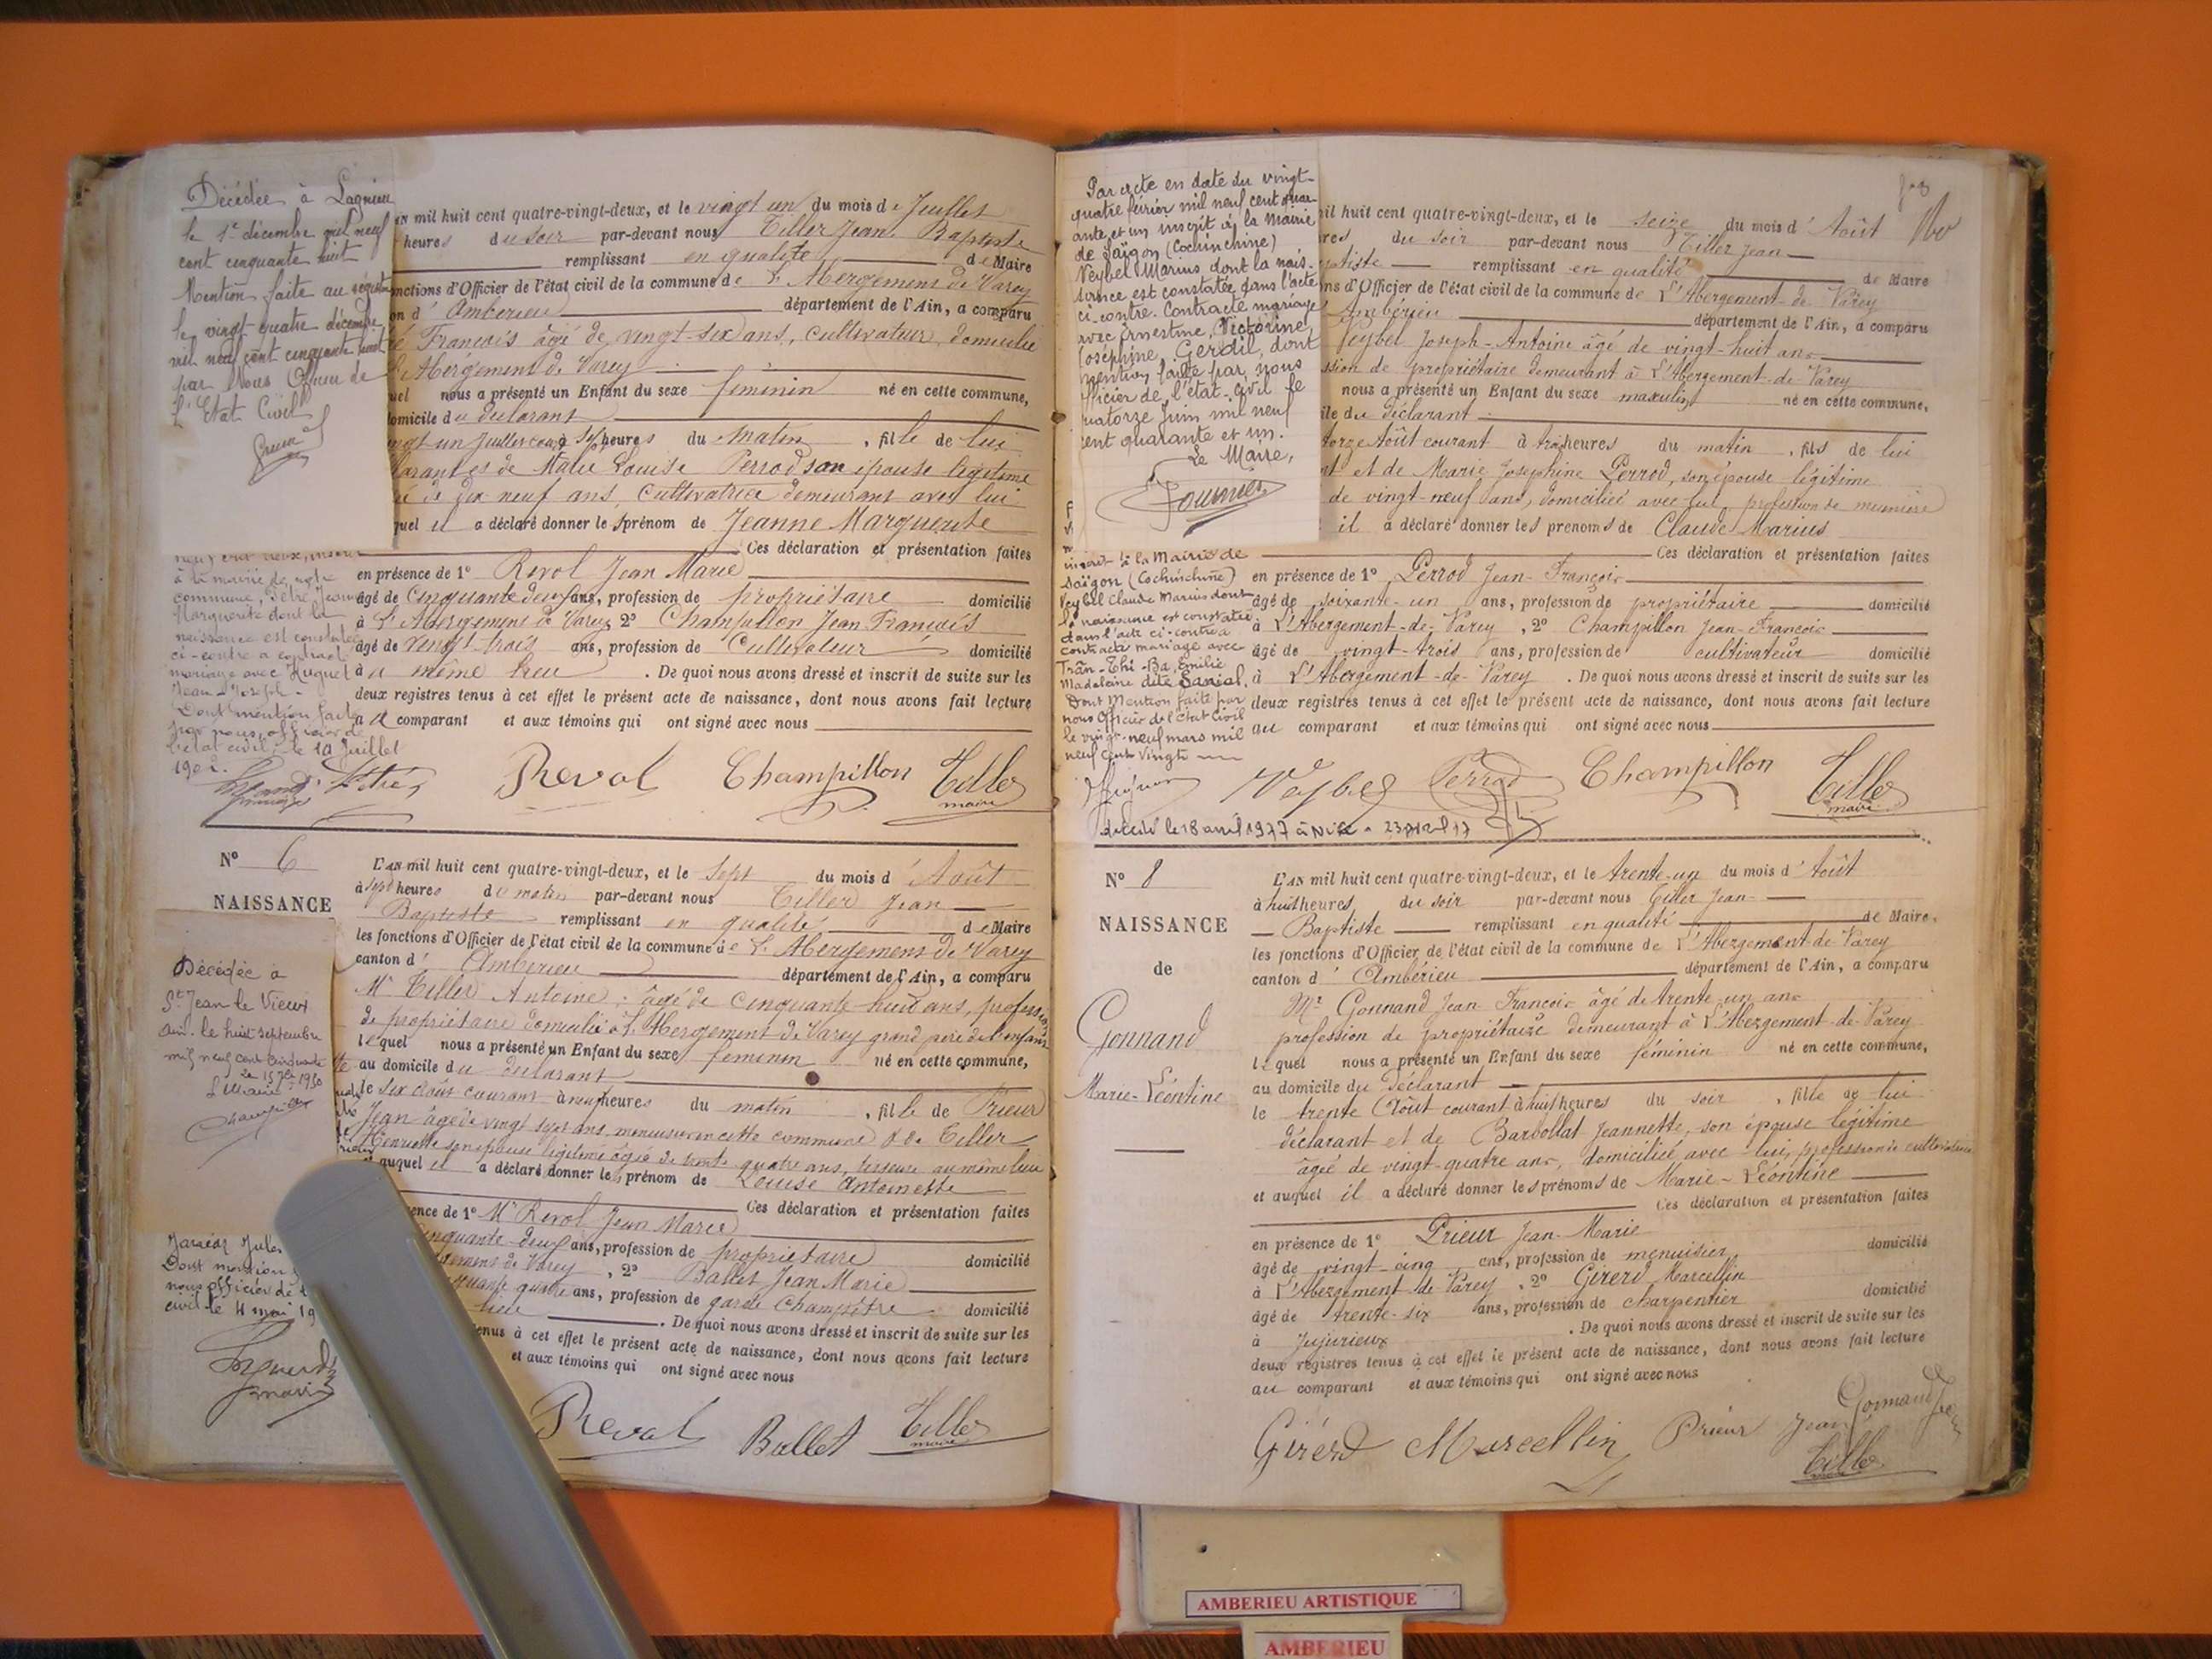 Décédée à Lagnieu
le 1er décembre mil neuf
cent cinquante huit
Mention faite au registre
le vingt-quatre décembre
mil neuf cent cinquante huit
par Nous Officier de
l'Etat Civil
an mil huit cent quatre-vingt-deux, et le vingt un du mois de Juillet
heures du soir par-devant nous Tiller Jean Baptiste
remplissant en qualité de Maire
nctions d'Officier de l'état civil de la commune de L'Abergement de Varey
on d'Ambérieu département de l'Ain, a comparu
François âgé de vingt-six ans, cultivateur, domicilié
Abergement de Varey
uel nous a présenté un Enfant du sexe féminin né en cette commune,
domicile du déclarant
un Juillet heures du matin, fille de lui
et de Marie Louise Perrod son épouse légitime
de dix neuf ans, cultivatrice demeurant avec lui
quel il a déclaré donner les prénom de Jeanne Marguerite
Ces déclaration et présentation faites
à la mairie de notre
commune,
Marguerite dont la
naissance est constatée
ci-contre a contracté
mariage avec Huguet
Jean-Joseph.
Dont mention faite
par nous, officier de
l'état civil, le 10 Juillet
190
en présence de 1º Revol Jean Marie
âgé de cinquante deux ans, profession de propriétaire domicilié
à L'Abergement de Varey 2º Champillon Jean François
âgé de vingt trois ans, profession de Cultivateur domicilié
au même lieu. De quoi nous avons dressé et inscrit de suite sur les
deux registres tenus à cet effet le présent acte de naissance, dont nous avons fait lecture
au comparant et aux témoins qui ont signé avec nous
Revol Champillon Tiller
maire
Nº 6
NAISSANCE
Décédée à
St Jean le Vieux
Ain. le huit septembre
mil neuf cent cinquante
Le Maire
Jules
Dont mention
nous officier de l
civil le 4 mai 19
maire
L'an mil huit cent quatre-vingt-deux, et le sept du mois d'Août
à sept heures du matin par-devant nous Tiller Jean
Baptiste remplissant en qualité de Maire
les fonctions d'Officier de l'état civil de la commune de L'Abergement de Varey
canton d'Ambérieu département de l'Ain, a comparu
Mr Tiller Antoine, âgé de cinquante huit ans, profession
de propriétaire domicilié à L'Abergement de Varey grand père de l'enfant
lequel nous a présenté un Enfant du sexe féminin né en cette commune,
au domicile du déclarant
le six Août courant à neuf heures du matin, fille de Prieur
Jean âgé de vingt sept ans menuisier en cette commune & de Tiller
Henriette son épouse légitime âgée de vingt quatre ans, au même lieu
auquel il a déclaré donner les prénom de Louise Antoinette
Ces déclaration et présentation faites
ence de 1º Mr Revol Jean Marie
inquante deux ans, profession de propriétaire domicilié
de Varey, 2º Ballet Jean Marie
quante quatre ans, profession de garde champêtre domicilié
lieu. De quoi nous avons dressé et inscrit de suite sur les
tenus à cet effet le présent acte de naissance, dont nous avons fait lecture
et aux témoins qui ont signé avec nous
Revol Ballet Tiller
maire
Par acte en date du vingt-
quatre février mil neuf cent quar-
ante et un inscrit à la Mairie
de Saïgon (Cochinchine)
Veybel Marius dont la nais-
sance est constatée dans l'acte
ci-contre. Contracté mariage
avec Ernestine, Victorine,
Joséphine Gerdil, dont
mention faite par nous
officier de l'état-civil le
quatorze Juin mil neuf
cent quarante et un.
Le Maire,
Fournier
il huit cent quatre-vingt-deux, et le seize du mois d'Août
res du soir par-devant nous Tiller Jean
ptiste remplissant en qualité de Maire
ns d'Officier de l'état civil de la commune de L'Abergement-de-Varey
Ambérieu département de l'Ain, a comparu
Veybel Joseph-Antoine âgé de vingt-huit ans
ssion de propriétaire demeurant à L'Abergement-de-Varey
nous a présenté un Enfant du sexe masculin né en cette commune,
ile du déclarant
torze Août courant à trois heures du matin, fils de lui
nt et de Marie Joséphine Perrod, son épouse légitime
de vingt-neuf ans, domiciliée avec lui, profession de
il a déclaré donner les prénoms de Claude Marius
Ces déclaration et présentation faites
inscrit à la Mairie de
Saïgon (Cochinchine)
Veybel Claude Marius dont
la naissance est constatée
dans l'acte ci-contre a
contracté mariage avec
Trân-Thi-Ba, Emilie
Madeleine dite Sanial,
Dont Mention faite par
nous Officier de l'état Civil
le vingt-neuf mars mil
neuf cent vingt
en présence de 1º Perrod Jean-François
âgé de soixante-un ans, profession de propriétaire domicilié
à L'Abergement-de-Varey, 2º Champillon Jean-François
âgé de vingt-trois ans, profession de cultivateur domicilié
à L'Abergement-de-Varey. De quoi nous avons dressé et inscrit de suite sur les
deux registres tenus à cet effet le présent acte de naissance, dont nous avons fait lecture
au comparant et aux témoins qui ont signé avec nous
Veybel Perrod Champillon Tiller
maire
décédé le 18 avril 1977 à Nice
Nº 8
NAISSANCE
de
Gonnand
Marie-Léontine
L'an mil huit cent quatre-vingt-deux, et le trente-un du mois d'Août
à huit heures du soir par-devant nous Tiller Jean
Baptiste remplissant en qualité de Maire,
les fonctions d'Officier de l'état civil de la commune de L'Abergement-de-Varey
canton d'Ambérieu département de l'Ain, a comparu
Mr Gonnand Jean François âgé de trente-un ans
profession de propriétaire demeurant à L'Abergement-de-Varey
lequel nous a présenté un Enfant du sexe féminin né en cette commune,
au domicile du déclarant
le trente Août courant à huit heures du soir, fille de lui
déclarant et de Barbollat Jeannette, son épouse légitime
âgée de vingt-quatre ans, domiciliée avec lui, profession de cultivatrice
et auquel il a déclaré donner les prénoms de Marie-Léontine
Ces déclaration et présentation faites
en présence de 1º Prieur Jean-Marie
âgé de vingt-cinq ans, profession de menuisier domicilié
à L'Abergement de Varey, 2º Girerd Marcellin
âgé de trente-six ans, profession de charpentier domicilié
à Jujurieux. De quoi nous avons dressé et inscrit de suite sur les
deux registres tenus à cet effet le présent acte de naissance, dont nous avons fait lecture
au comparant et aux témoins qui ont signé avec nous
Gonnand
Girerd Marcellin Prieur Jean
Tiller
AMBERIEU ARTISTIQUE
AMBERIEU